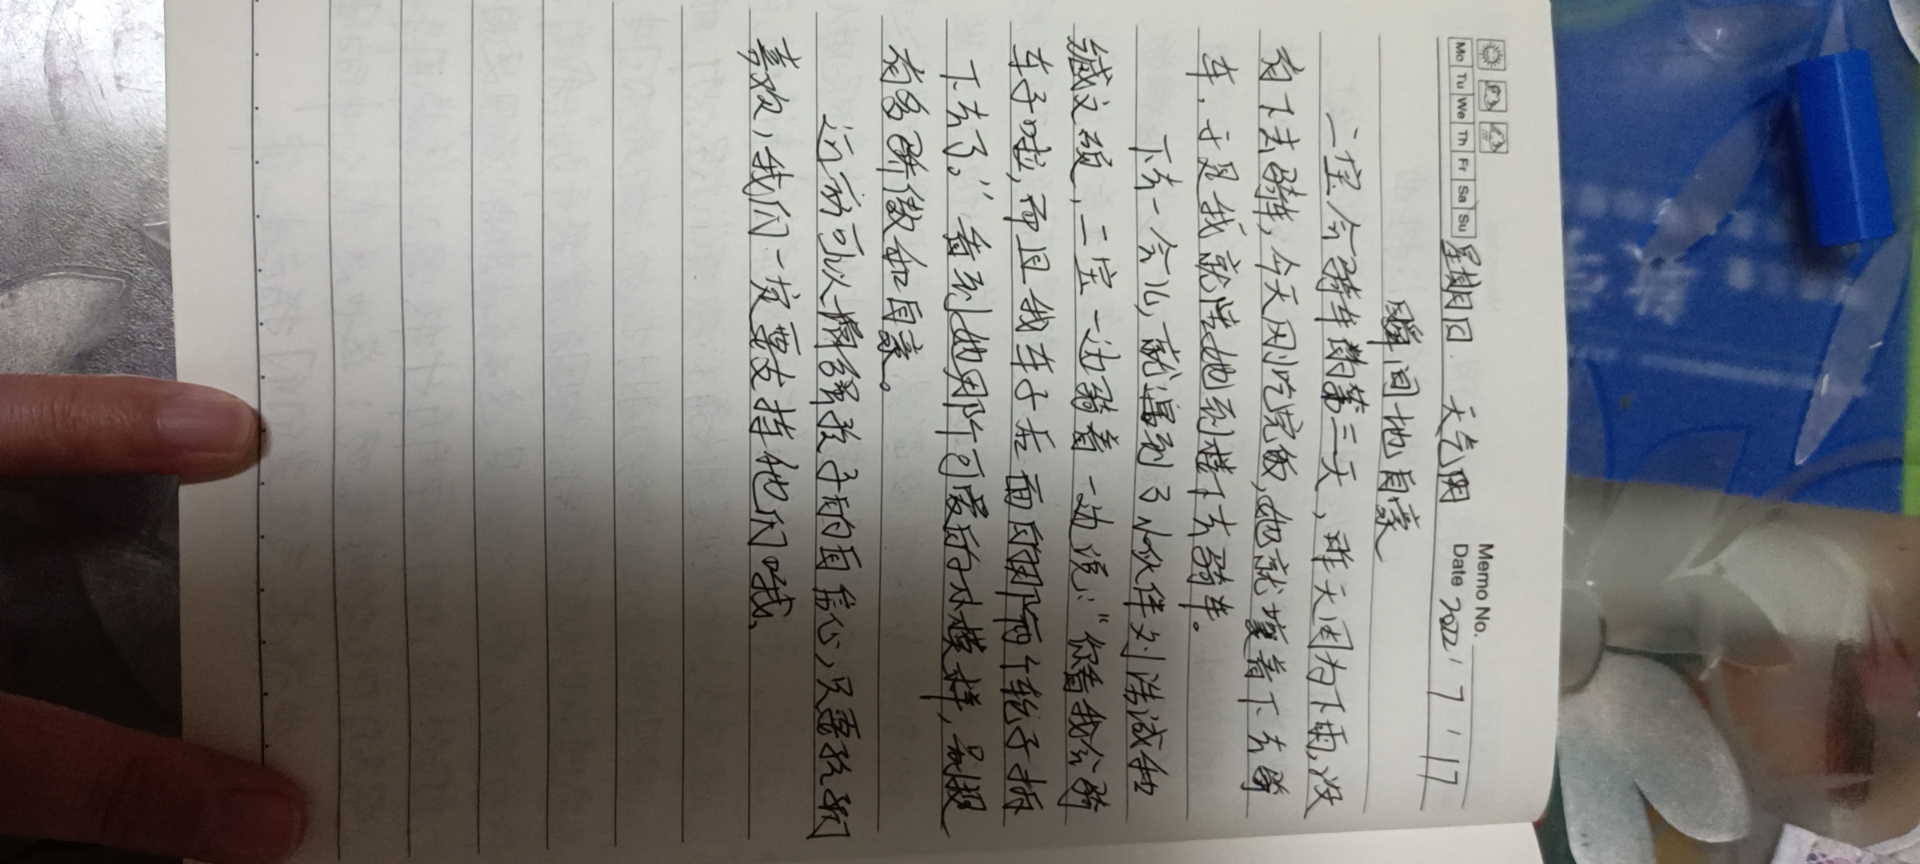 Memo No.
Mo Tu We Th Fr Sa Su 星期日 天气阴 Date 2022 / 7 / 17
瞬间地自豪
二宝会骑车的第三天，昨天因为下雨，没
有下去骑，今天刚吃完饭，她就嚷着下去骑
车，于是我就陪她到楼下去骑车。
下去一会儿，就遇到了小伙伴刘浩诚和
臧文硕，二宝一边骑着一边说：“你看我会骑
车子啦，而且我车子后面的那两个轮子拆
下去了。”看到她那个可爱的小模样，别提
有多骄傲和自豪。
运动可以增强孩子的自信心，只要孩子们
喜欢，我们一定要支持他们哦、